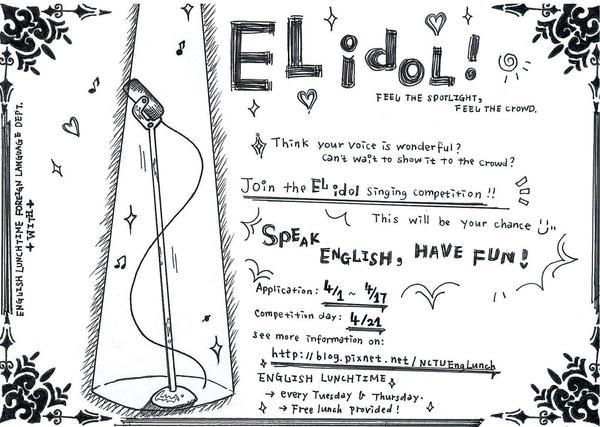 EL idol!
FEEL THE SPOTLIGHT,
FEEL THE CROWD.
Think your voice is wonderful?
can't wait to show it to the crowd?
Join the EL idol singing competition!!
This will be your chance
SPEAK
ENGLISH, HAVE FUN!
Application: 4/1 ~ 4/17
Competition day: 4/21
see more information on:
http://blog.pixnet.net/NCTUEngLunch
ENGLISH LUNCHTIME
→ every Tuesday & Thursday.
→ Free lunch provided!
ENGLISH LUNCHTIME FOREIGN LANGUAGE DEPT.